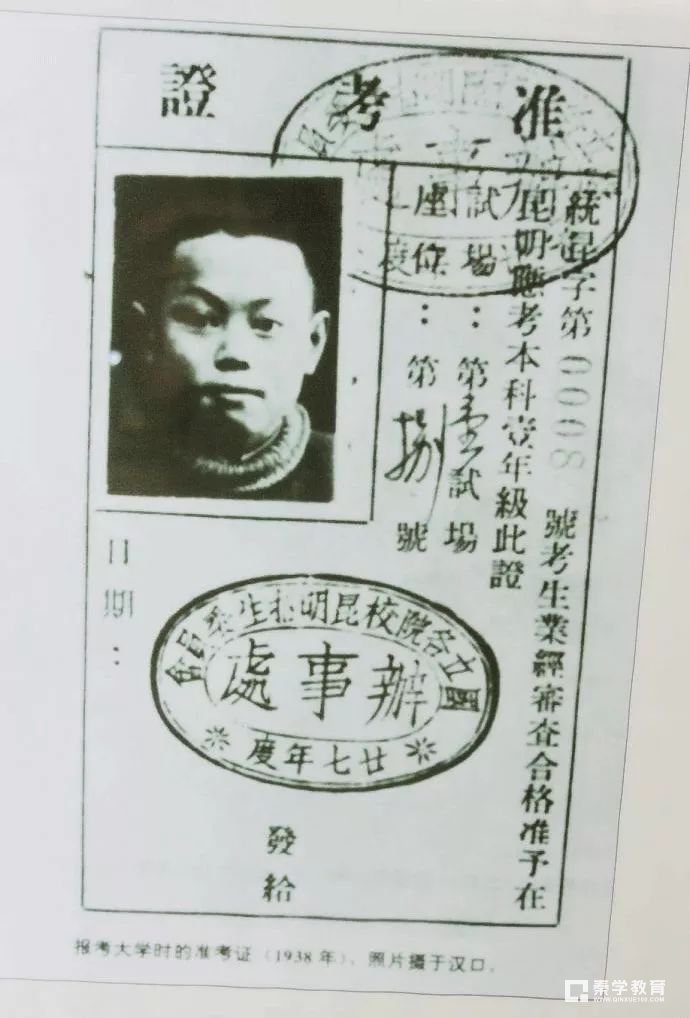 准考證
統昆字第0008號考生業經審查合格准予在
昆明應考本科壹年級此證
試場：第壹試場
座位：第捌號
日期：
國立各院校昆明招生委員會
辦事處
廿七年度
發給
报考大学时的准考证（1938年），照片摄于汉口。
秦学教育
WWW.QINXUE100.COM